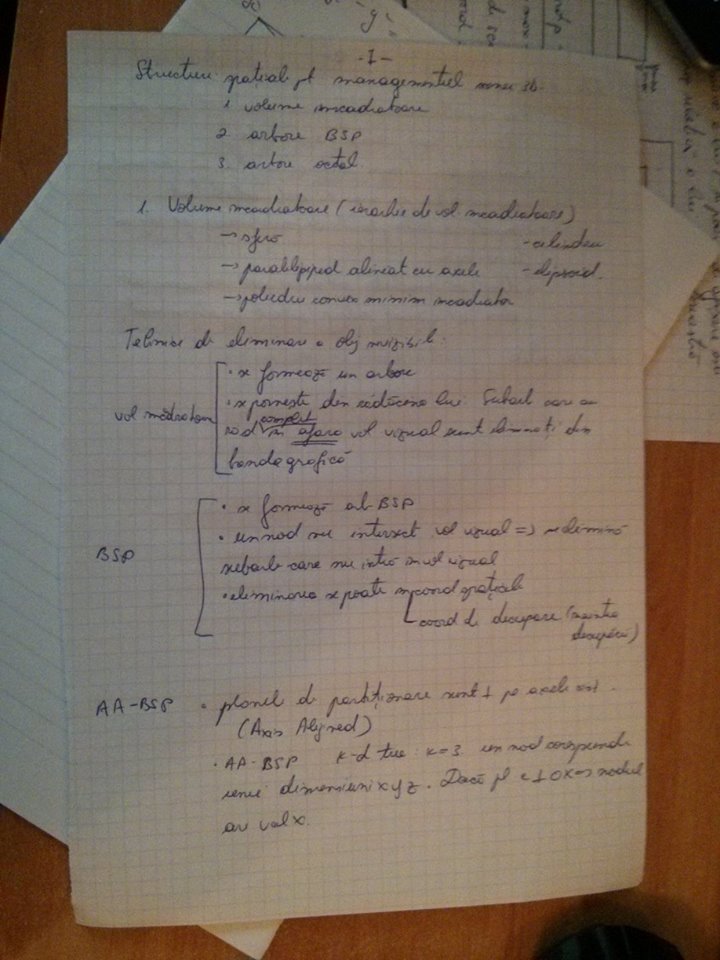 -I-
Structuri spațiale pt managementul scenei 3D.
1. volume încadratoare
2. arbore BSP
3. arbore octal
1. Volume încadratoare (ierarhie de vol încadratoare)
→ sferă - cilindru
→ paralelipiped aliniat cu axele - elipsoid.
→ poliedru convex minim încadrator
Tehnice de eliminare a obj invizibile:
vol încadratoare
• se formează un arbore
• se pornește din rădăcina lui. Subarb care au
complet
nod în afara vol vizual sunt eliminați din
banda grafică
BSP
• se formează arb BSP
• un nod nu intersect vol vizual => se elimină
subarb care nu intră în vol vizual
• eliminarea se poate în coord spațiale
coord de decupare (înaintea
decupării)
AA-BSP • planele de partiționare sunt ⊥ pe axele
(Axis Aligned)
• AA-BSP k-d tree: k=3 un nod corespunde
unei dimensiuni x y z. Dacă pl e ⊥ OX => nodul
are val x.